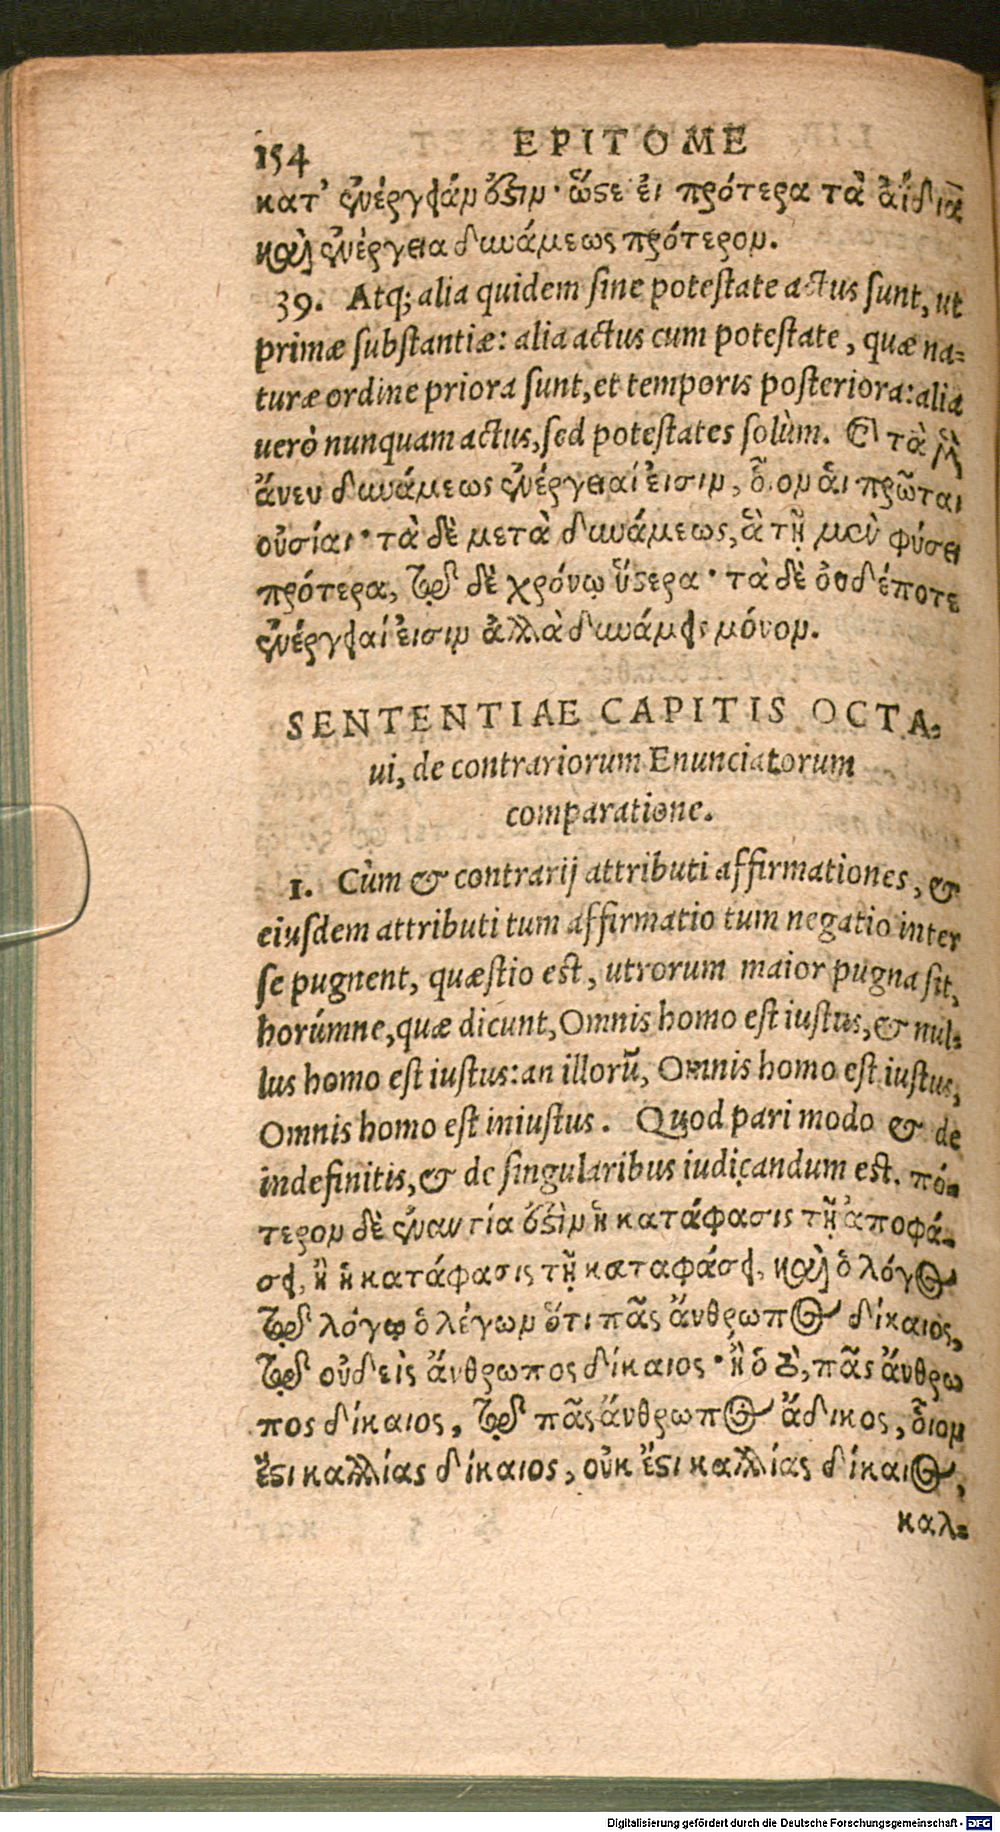 154 EPITOME
κατ' ἐνέργειάν ἐστιν· ὥστε ἐι πρότερα τὰ ἀΐδια
καὶ ἐνέργεια δυνάμεως πρότερον.
39. Atq; alia quidem sine potestate actus sunt, ut
primæ substantiæ: alia actus cum potestate, quæ na=
turæ ordine priora sunt, et temporis posteriora: alia
uerò nunquam actus, sed potestates solùm. Καὶ τὰ μὲν
ἄνευ δυνάμεως ἐνέργειαί ἐισιν, οἷον ἁι πρῶται
οὐσίαι· τὰ δὲ μετὰ δυνάμεως, ἃ τῇ μὲν φύσει
πρότερα, τῷ δὲ χρόνῳ ὕστερα· τὰ δὲ οὐδέποτε
ἐνέργειαί ἐισιν ἀλλὰ δυνάμεις μόνον.
SENTENTIAE CAPITIS OCTA=
ui, de contrariorum Enunciatorum
comparatione.
1. Cùm & contrarij attributi affirmationes, &
eiusdem attributi tum affirmatio tum negatio inter
se pugnent, quæstio est, utrorum maior pugna sit,
horúmne, quæ dicunt, Omnis homo est iustus, & nul=
lus homo est iustus: an illorū, Omnis homo est iustus,
Omnis homo est iniustus. Quod pari modo & de
indefinitis, & de singularibus iudicandum est. πό=
τερον δὲ ἐναντία ἐστὶν ἡ κατάφασις τῇ ἀποφά=
σει, ἢ ἡ κατάφασις τῇ καταφάσει, καὶ ὁ λόγος
τῷ λόγῳ ὁ λέγων ὅτι πᾶς ἄνθρωπος δίκαιος,
τῷ οὐδεὶς ἄνθρωπος δίκαιος· ἢ ὁ, πᾶς ἄνθρω
πος δίκαιος, τῷ πᾶς ἄνθρωπος ἄδικος, οἷον
ἔστι καλλίας δίκαιος, οὐκ ἔστι καλλίας δίκαιος,
καλ=
Digitalisierung gefördert durch die Deutsche Forschungsgemeinschaft - DFG